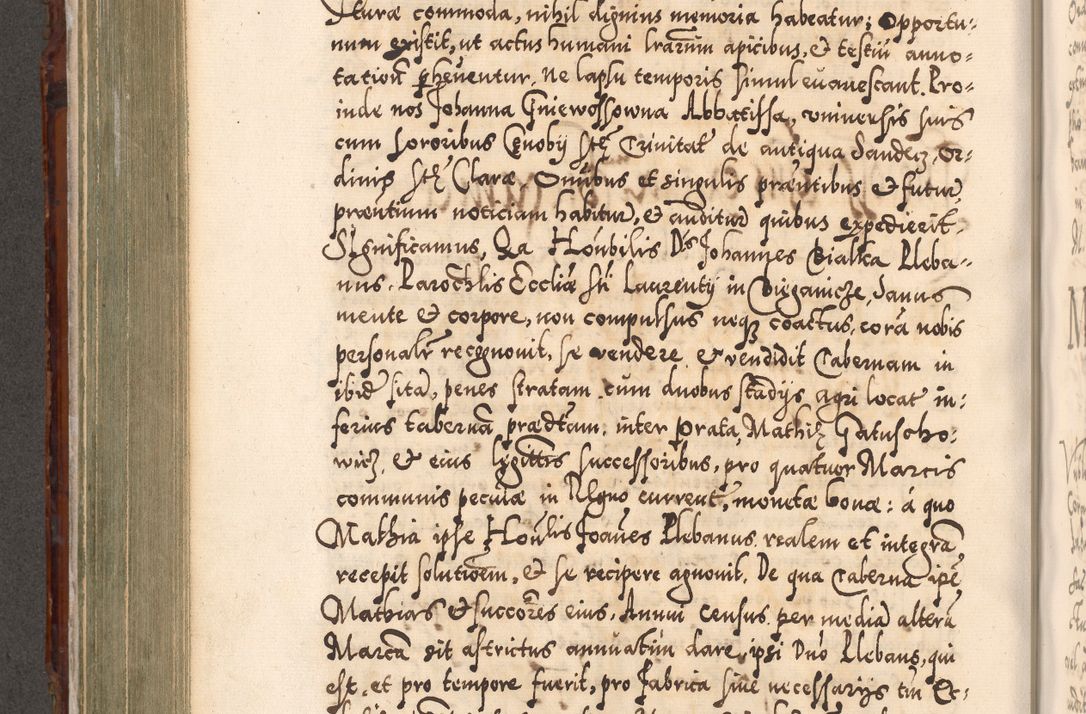 turæ commoda, nihil dignius memoria habeatur; Opportu-
num existit, ut actus humani lrarum apicibus, & testiũ anno-
tatioñ pheñentur. Ne lapsu temporis simul evanescant. Pro-
inde nos Johanna Gniewossowna Abbatissa, universis suis
cum sororibus Cenobij Stę Trinitat de antiqua Sandecz, Or-
dinis Stę Claræ. Omibus et singulis præntibus & futur,
præntium noticiam habitur, & auditur quibus expedierit.
Significamus, Qa Honbilis Dns Johannes Bialka Pleba-
nus. Parochlis Eccliæ Sti Laurentij in Bieganicze, Sanus
mente & corpore, non compulsus neqz coactus, corã nobis
personalr recognovit, se vendere & vendidit Tabernam in
ibid sitã, penes stratam cum duobus stadijs agri locat in-
ferius tabernã prædtam. inter prata Mathię Gatuscho-
wicz, & eius lygittis successoribus, pro quatuor Marcis
communis pecuiæ in Regno current, monetæ bonæ: á quo
Mathia ipse Honlis Joanes Plebanus realem et integrã
recepit solutioem, & se recipere agnovit. De qua Taberna ipse
Mathias & succores eius. Annui census per mediã alterã
Marcã sit astrictus annuatim dare, ipsi Dno Plebano, qui
est, et pro tempore fuerit, pro fabrica sive necessarijs tm Ec-